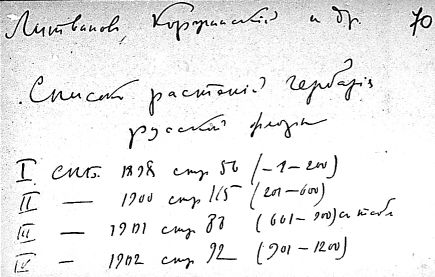 Литвинов, Коржинский и др. 70
Список растений гербария
русской флоры
I СПб. 1898 стр 56 (—1—200)
II — 1900 стр 165 (201—600)
III — 1901 стр 88 (601—900)
IV — 1902 стр 92 (901—1200)